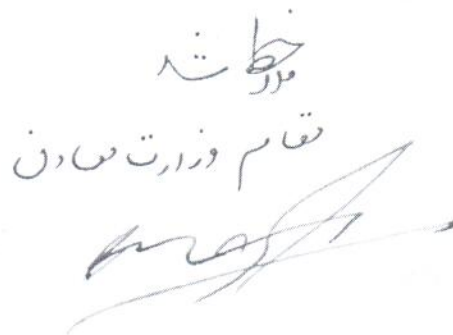 ملاحظه شد
مقام وزارت معادن